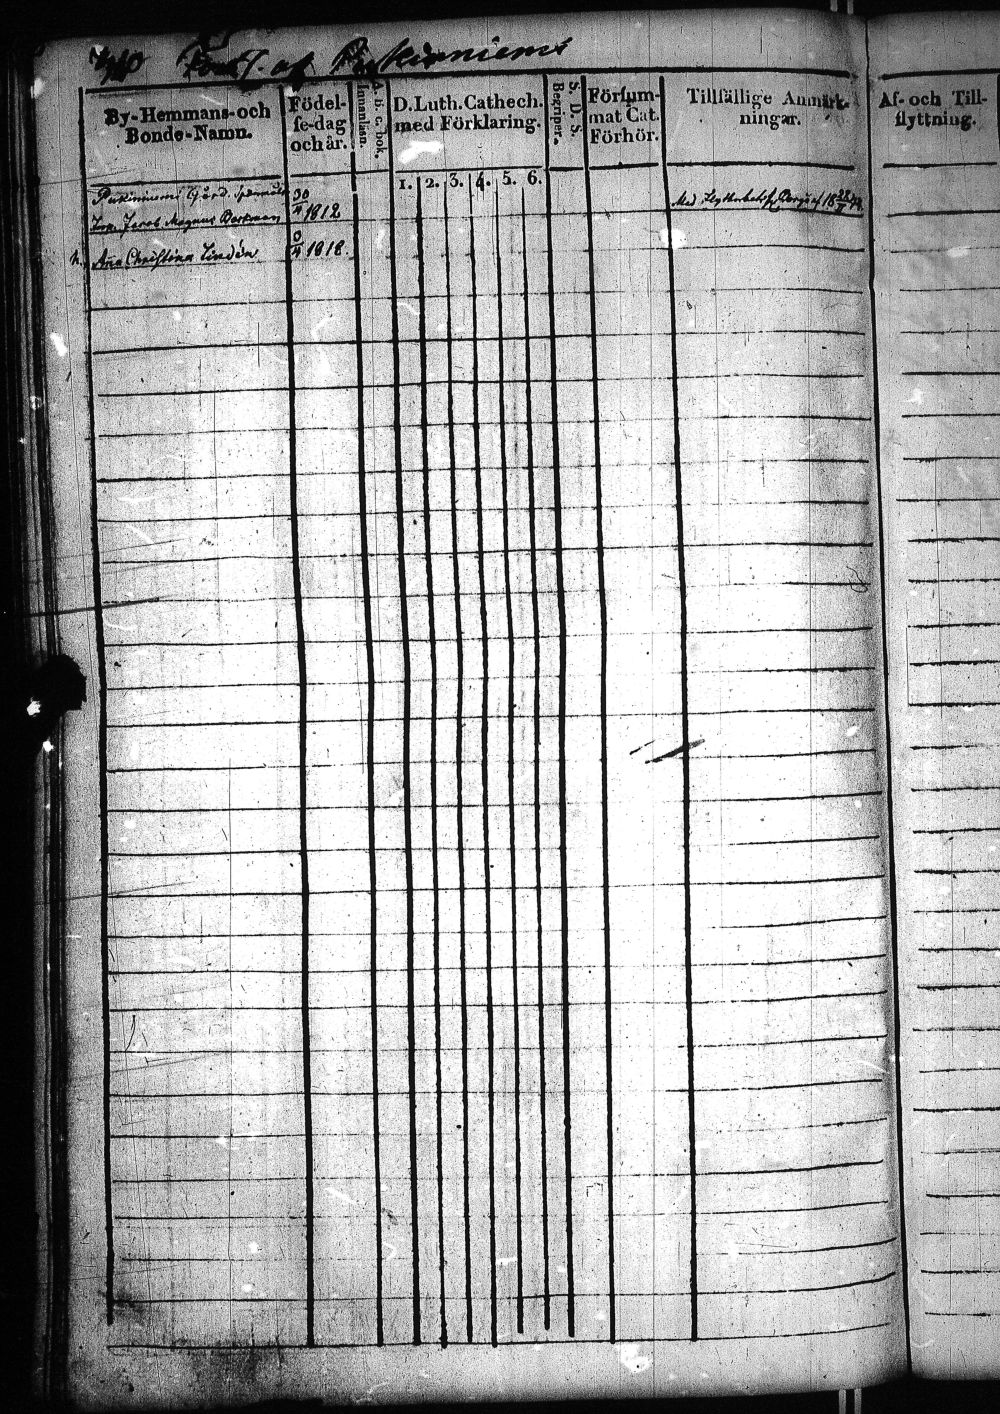 af Pukiniemi
By-Hemmans-och
Bonde-Namn.
Födel-
se-dag
och år.
A. B. C. bok.
Innanläsn.
D. Luth. Cathech.
med Förklaring.
1. 2. 3. 4. 5. 6.
S. D. S.
Begriper.
Försum-
mat Cat.
Förhör.
Tillfällige Anmärk-
ningar.
Af- och Till-
flyttning.
Pukiniemi Gård. 30
Jacob Magnus Barkman 4 1812
Med af 18
h. Ana Christina Lindén 4 1818.